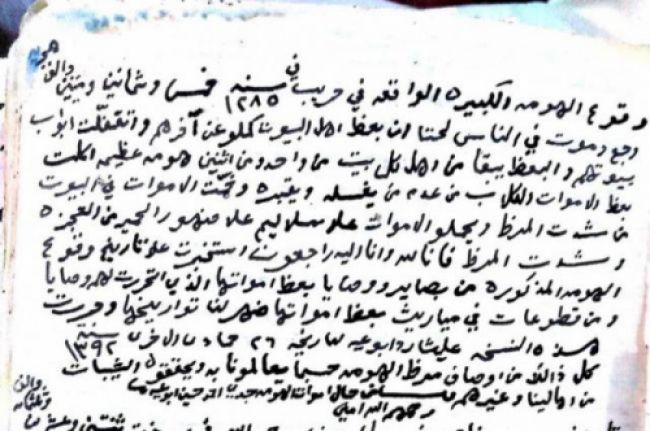 وقوع الهومه الكبيره الواقعه في حريب في سنه ١٢٨٥ خمس وثمانين وميتين والف هجريه
وجع وموت في الناس لحتا ان بعظ اهل البيوت كملو عن آخرهم واتقفلت ابواب
بيوتهم والبعظ يبقا من اهل كل بيت من واحد ومن اثنين هومه عظيمه اكلت
بعظ الاموات الكلاب من عدم من يغسله ويقبره وتحت الاموات في البيوت
من شدت المرظ ويحملو الاموات علا سلاليم علا ظهور الحمير من العجزه
وشدت المرظ فانا لله وانا اليه راجعون استخرت علا تاريخ وقوع
الهومه المذكوره من بصاير ووصايا بعظ امواتها الذي اتحررت لهم وصايا
ومن قطوعات في مياريث بعظ امواتها ظهر لنا تواريخها وحررت
هذه النسخه علاشارد ابوعيه لتاريخه ٢٦ جماد سنه ١٣٩٢
كل ذالك من اوصاف مرظ الهومه حسبما يعالمونا به ويحققوه الشيبات
من اهالينا وغيرهم حال اموات الهومه
رحمهم الله امين